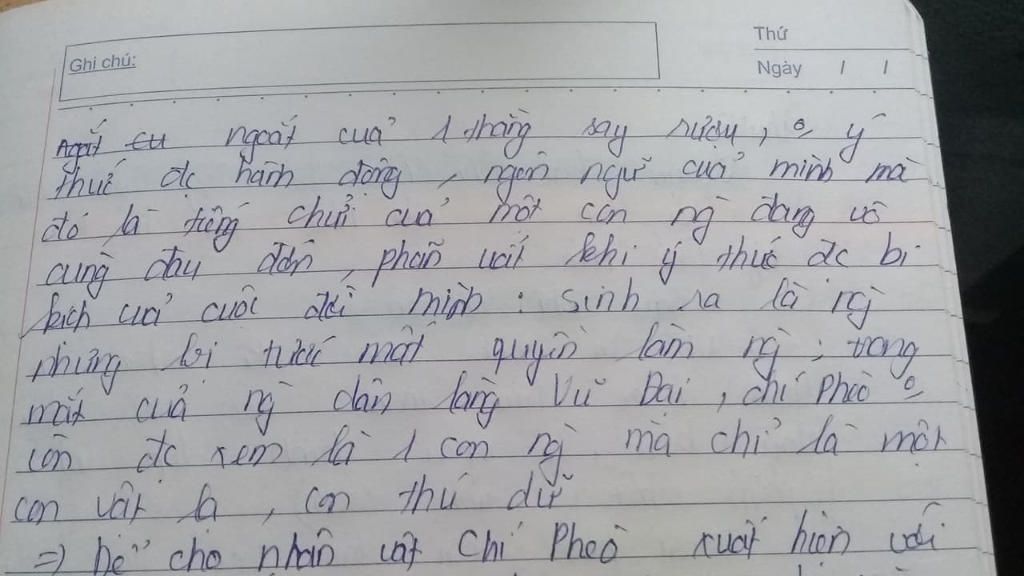 Thứ
Ghi chú:
Ngày / /
ngoắt cuả 1 thằng say rượu, o ý
thức đc hành động, ngôn ngữ cuả mình mà
đó là tiếng chửi cuả một con ng̀ đang vô
cùng đau đớn, phẫn uất khi ý thức đc bi
kịch cuả cuộc đời mình: sinh ra là ng̀
nhưng bị tước mất quyền làm ng̀; trong
mắt cuả ng̀ dân làng Vũ Đại, chí Phèo o
còn đc xem là 1 con ng̀ mà chỉ là một
con vật lạ, con thú dữ
=> Để cho nhân vật Chí Phèo xuất hiện với